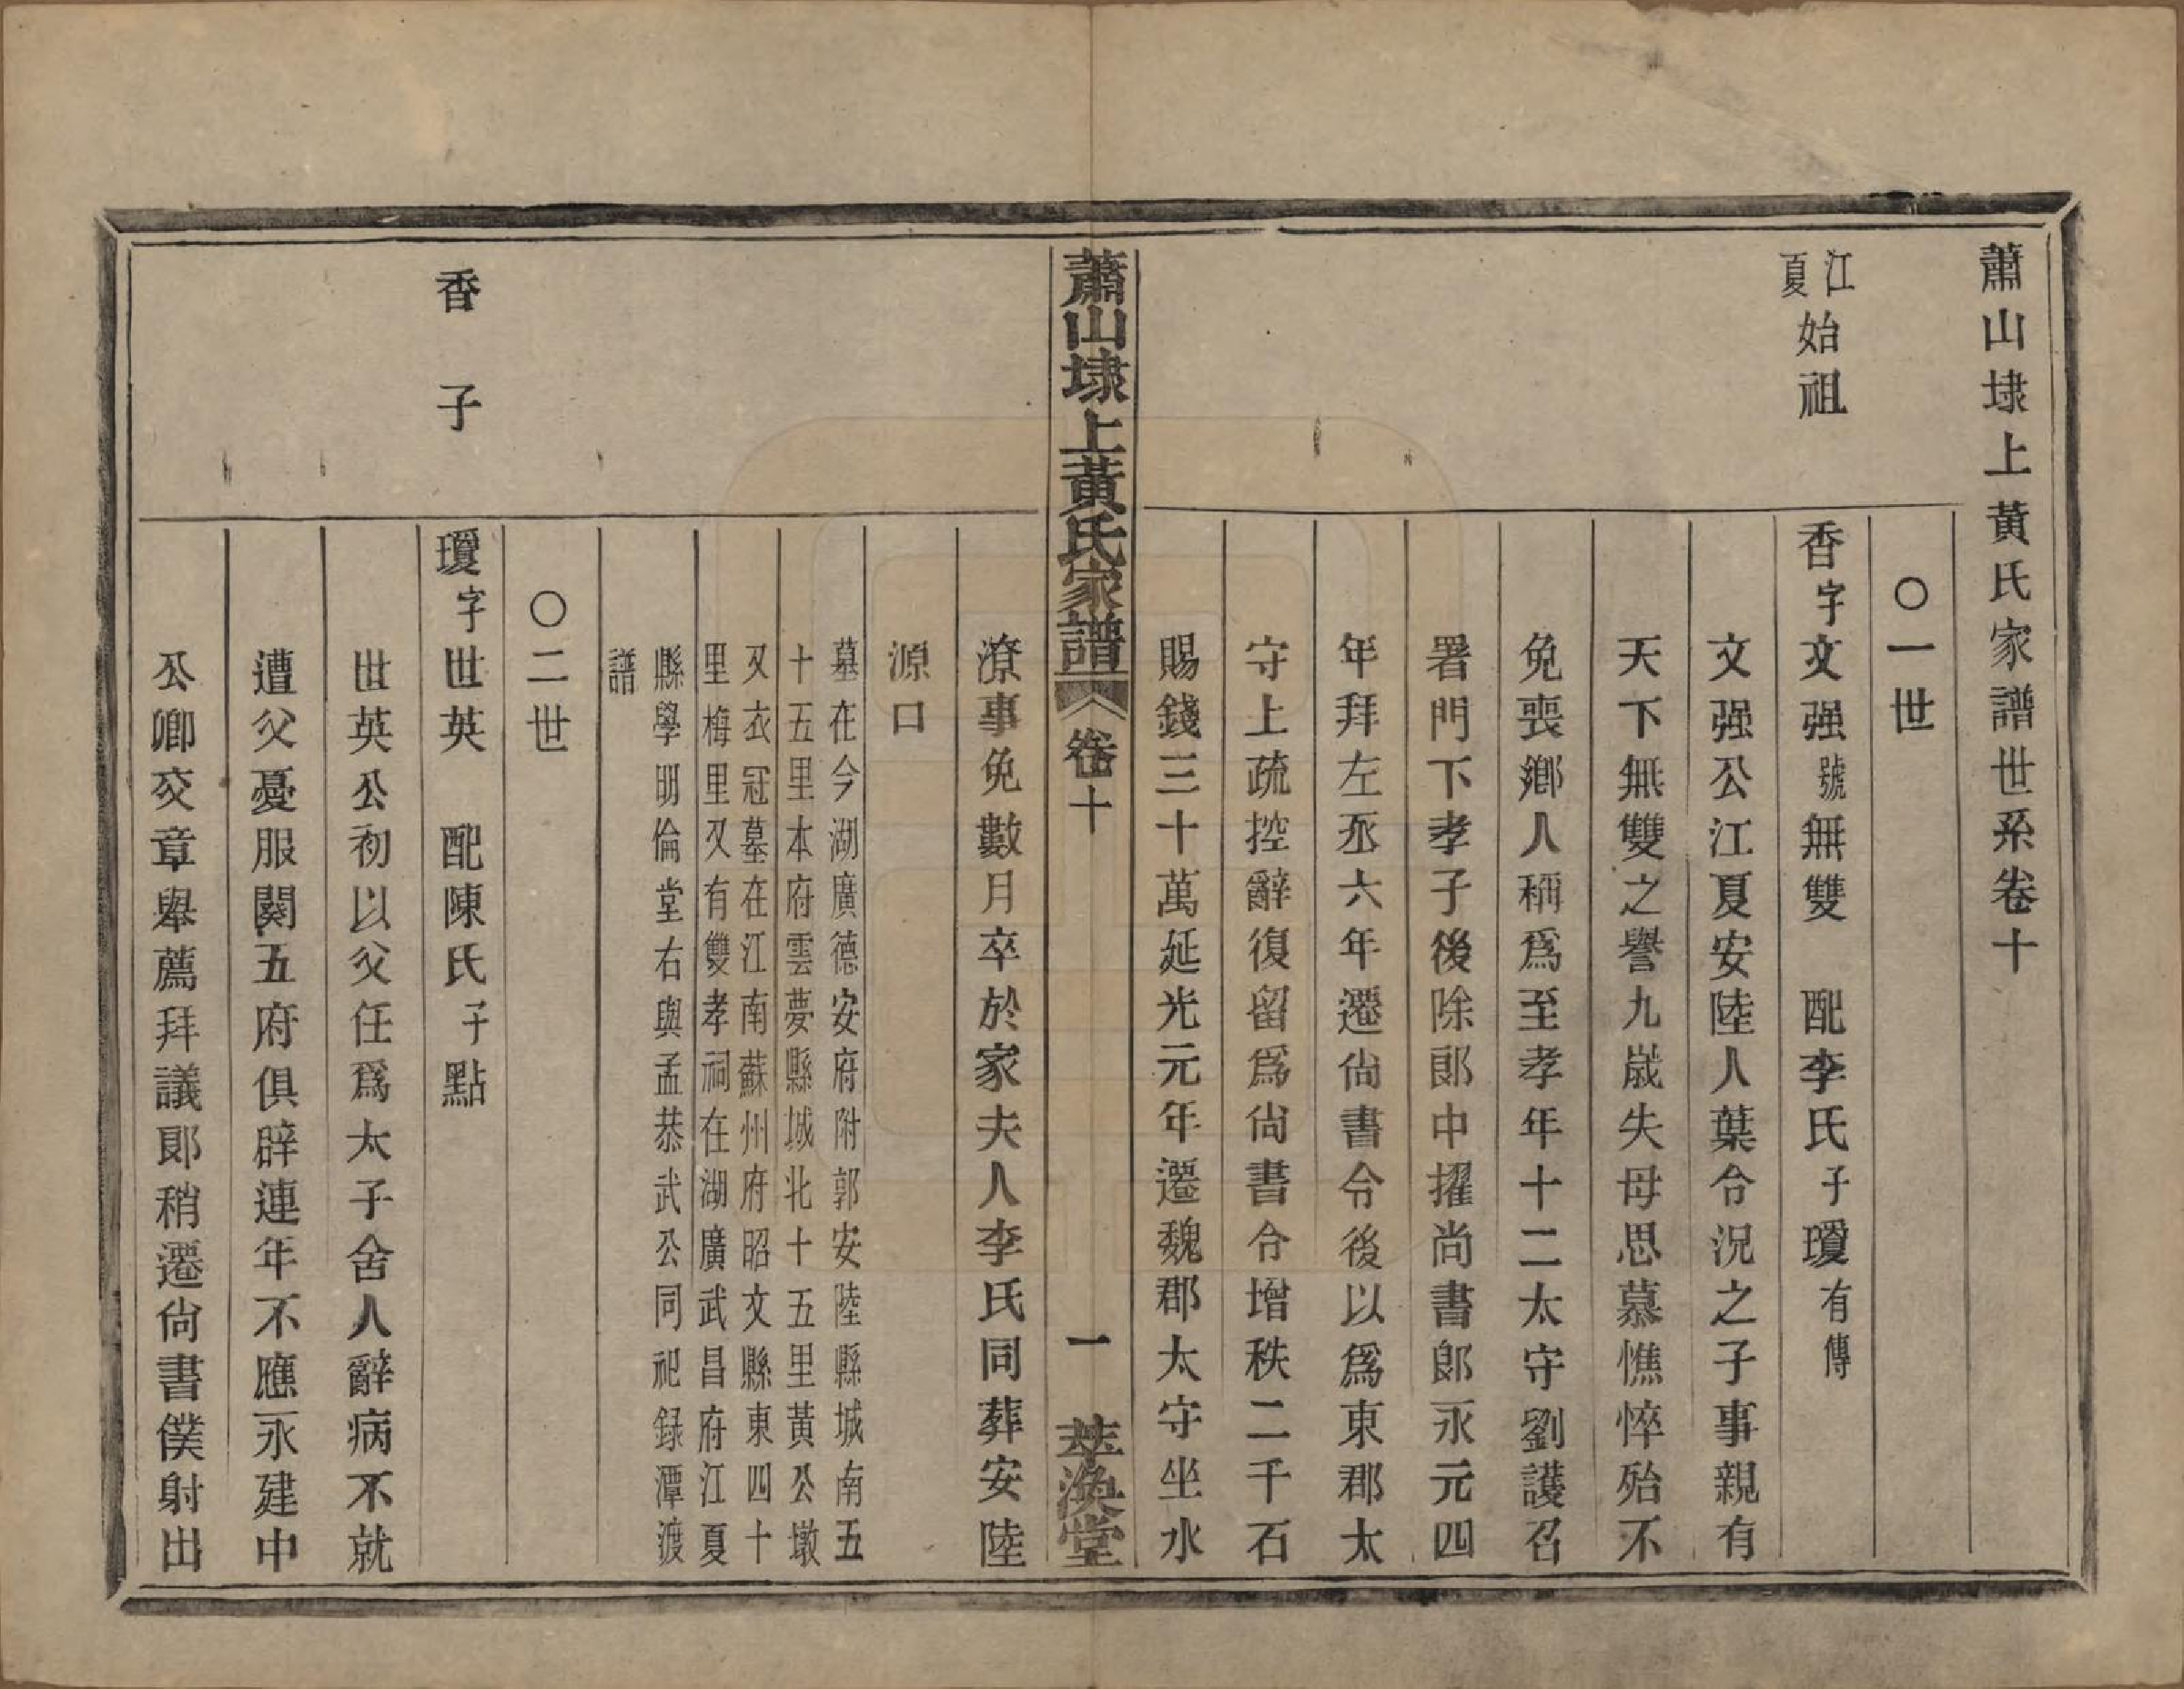 蕭山埭上黃氏家譜世系卷十
〇一世
江夏始祖
香字文强號無雙　配李氏子瓊有傳
文强公江夏安陸人葉令況之子事親有
天下無雙之譽九歲失母思慕憔悴殆不
免喪鄕人稱爲至孝年十二太守劉護召
署門下孝子後除郞中擢尚書郞永元四
年拜左丞六年遷尙書令後以爲東郡太
守上疏控辭復留爲尙書令增秩二千石
賜錢三十萬延光元年遷魏郡太守坐水
蕭山埭上黃氏家譜　卷十　一　萃渙堂
潦事免數月卒於家夫人李氏同葬安陸
源口
墓在今湖廣德安府附郭安陸縣城南五
十五里本府雲夢縣城北十五里黃公墩
又衣冠墓在江南蘇州府昭文縣東四十
里梅里又有雙孝祠在湖廣武昌府江夏
縣學明倫堂右與孟恭武公同祀録潭渡
譜
〇二世
香子
瓊字世英　配陳氏子點
世英公初以父任爲太子舍人辭病不就
遭父憂服闋五府俱辟連年不應永建中
公卿交章舉薦拜議郞稍遷尙書僕射出